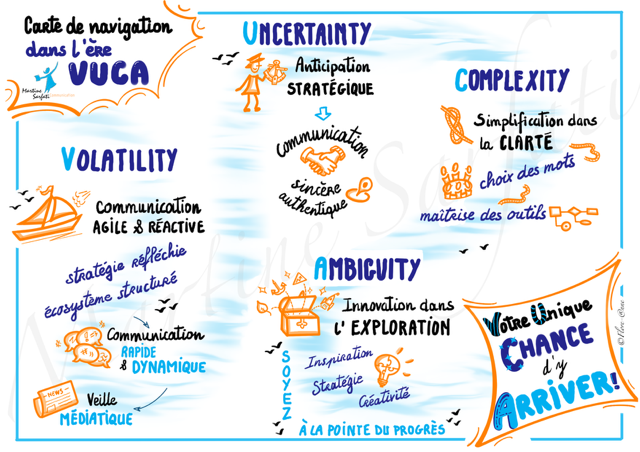 Carte de navigation
dans l'ère
VUCA
Martine
Sarfati
UNCERTAINTY
Anticipation
STRATÉGIQUE
Communication
sincère
authentique
COMPLEXITY
Simplification dans
la CLARTÉ
choix des mots
maîtrise des outils
VOLATILITY
Communication
AGILE & RÉACTIVE
stratégie réfléchie
écosystème structuré
Communication
RAPIDE
& DYNAMIQUE
NEWS
Veille
MÉDIATIQUE
AMBIGUITY
Innovation dans
L'EXPLORATION
Inspiration
Stratégie
Créativité
SOYEZ
À LA POINTE DU PROGRÈS
Votre Unique
CHANCE
d'y
ARRIVER!
Martine Sarfati